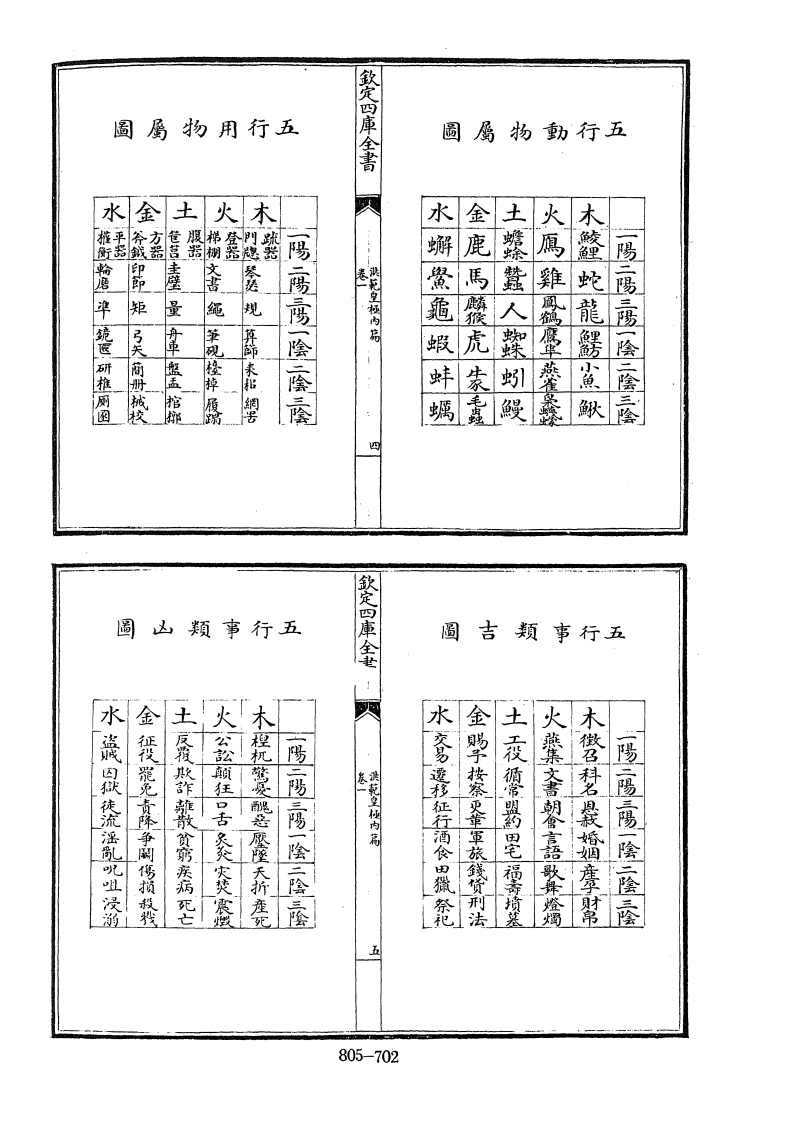 五行動物屬圖
一陽 二陽 三陽 一陰 二陰 三陰
木 鯪鯉 蛇 龍 鯉魴 小魚 鰍
火 鴈 雞 鳳鶴 鷹隼 燕雀 梟
土 蟾蜍 蠶 人 蜘蛛 蚓 鰻
金 鹿 馬 麟猴 虎 毛蟲
水 蠏 鱟 龜 蝦 蚌 蠣
欽定四庫全書
洪範皇極内篇
卷一
四
五行用物屬圖
一陽 二陽 三陽 一陰 二陰 三陰
木 疏器門牕 琴瑟 規 算節 耒耜 網罟
火 登器梯棚 文書 繩 筆硯 檯棹 履
土 腹器筐筥 圭璧 量 舟車 盤盂 棺槨
金 方器斧鉞 印節 矩 弓矢 簡冊 械校
水 平器權衡 輪磨 準 鏡匲 研椎 厠圂
五行事類吉圖
一陽 二陽 三陽 一陰 二陰 三陰
木 徵召 科名 恩赦 婚姻 產孕 財帛
火 燕集 文書 朝會 言語 歌舞 燈燭
土 工役 循常 盟約 田宅 福壽 墳墓
金 賜予 按察 更革 軍旅 錢貨 刑法
水 交易 遷移 征行 酒食 田獵 祭祀
欽定四庫全書
洪範皇極内篇
卷一
五
五行事類凶圖
一陽 二陽 三陽 一陰 二陰 三陰
木 驚憂 醜惡 壓墜 夭折 產死
火 公訟 顛狂 口舌 炙灸 灾焚 震燬
土 反覆 欺詐 離散 貧窮 疾病 死亡
金 征役 罷免 責降 爭鬪 傷損 殺戮
水 盜賊 囚獄 徒流 淫亂 呪咀 浸溺
805-702